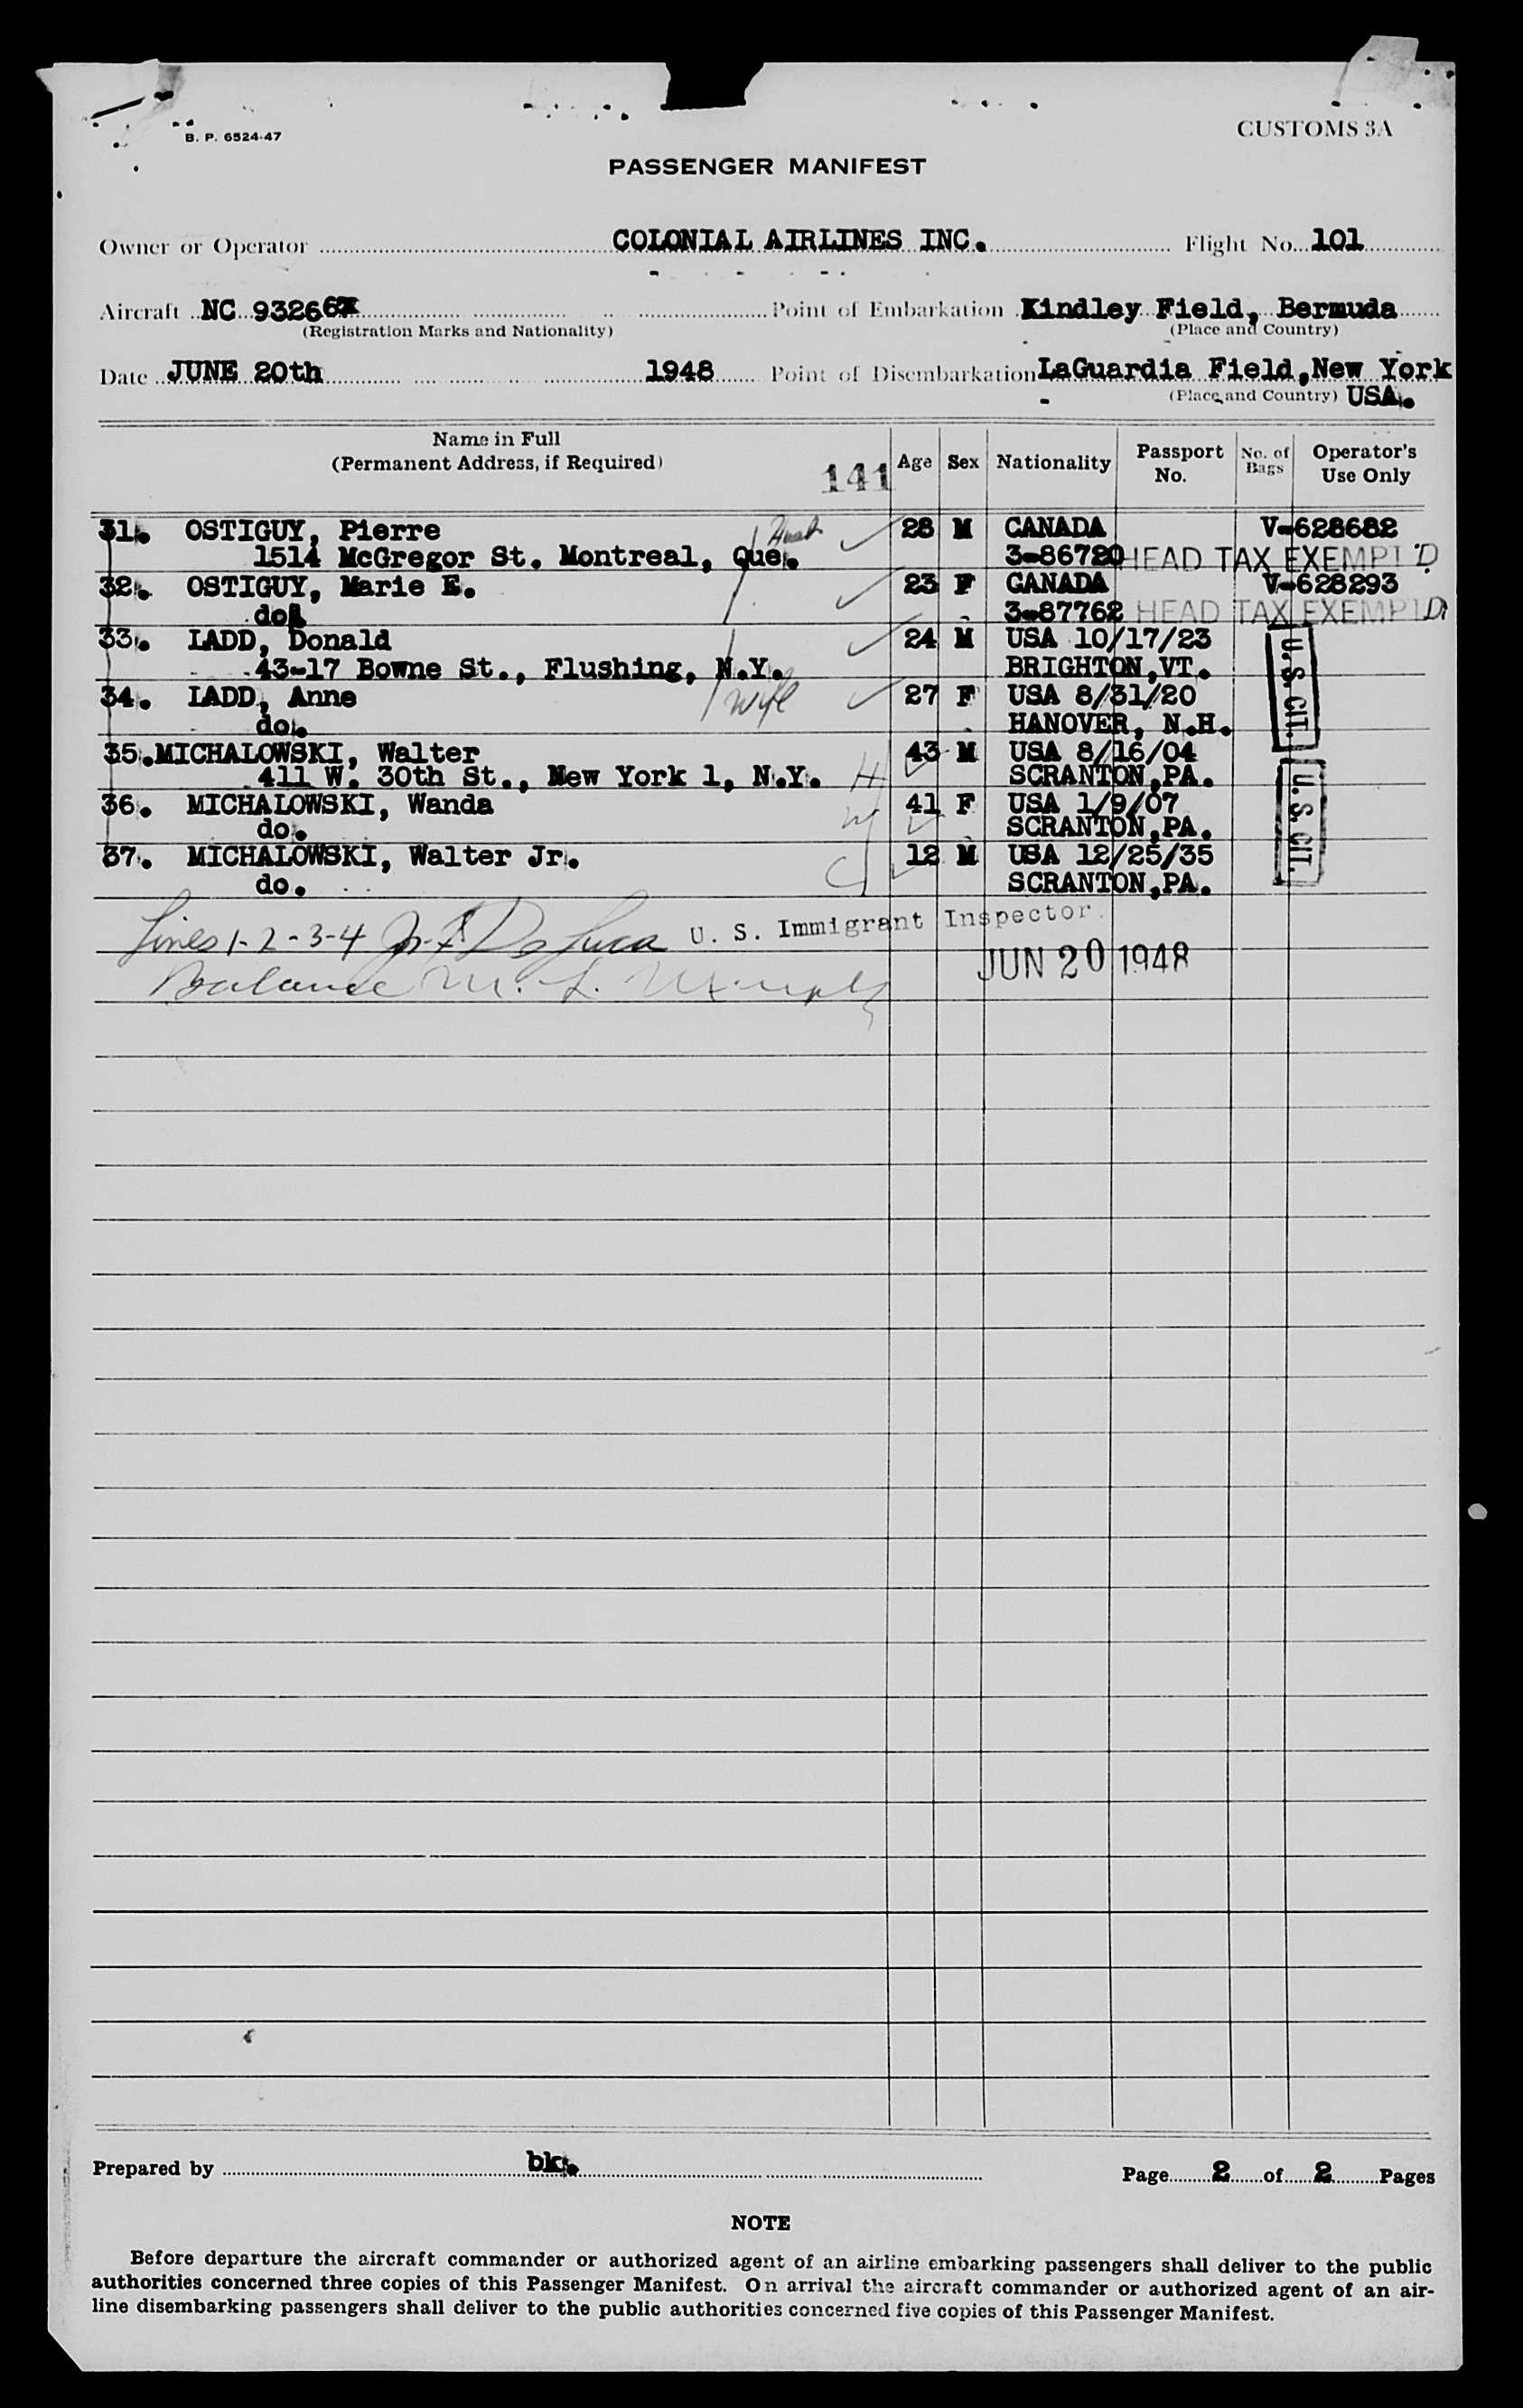 B. P. 6524-47
CUSTOMS 3A
PASSENGER MANIFEST
Owner or Operator COLONIAL AIRLINES INC. Flight No. 101
Aircraft NC 93266 Point of Embarkation Kindley Field, Bermuda
(Registration Marks and Nationality) (Place and Country)
Date JUNE 20th 1948 Point of Disembarkation LaGuardia Field, New York
(Place and Country) USA.
Name in Full
(Permanent Address, if Required) 141 Age Sex Nationality Passport No. No. of Bags Operator's Use Only
31. OSTIGUY, Pierre Husb 28 M CANADA V-628682
1514 McGregor St. Montreal, Que. 3-86720 HEAD TAX EXEMPT D
32. OSTIGUY, Marie E. 23 F CANADA V-628293
do. 3-87762 HEAD TAX EXEMPT D
33. LADD, Donald 24 M USA 10/17/23
43-17 Bowne St., Flushing, N.Y. BRIGHTON, VT.
U. S. CIT.
34. LADD, Anne wife 27 F USA 8/31/20
do. HANOVER, N.H.
35. MICHALOWSKI, Walter 43 M USA 8/16/04
411 W. 30th St., New York 1, N.Y. H SCRANTON, PA.
36. MICHALOWSKI, Wanda W 41 F USA 1/9/07
do. SCRANTON, PA.
U. S. CIT.
37. MICHALOWSKI, Walter Jr. C 12 M USA 12/25/35
do. SCRANTON, PA.
Lines 1-2-3-4 De Luca U. S. Immigrant Inspector
Balance M. L. JUN 20 1948
Prepared by bk. Page 2 of 2 Pages
NOTE
Before departure the aircraft commander or authorized agent of an airline embarking passengers shall deliver to the public
authorities concerned three copies of this Passenger Manifest. On arrival the aircraft commander or authorized agent of an air-
line disembarking passengers shall deliver to the public authorities concerned five copies of this Passenger Manifest.